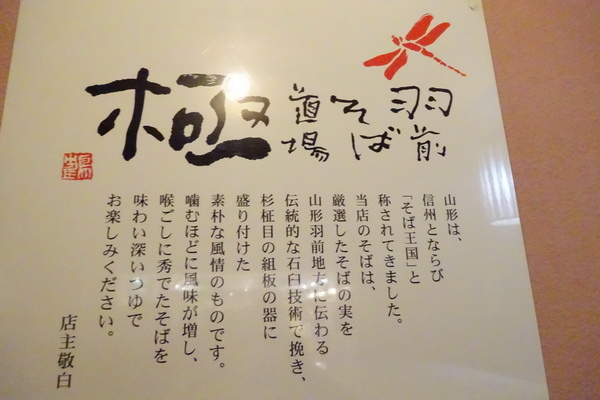 羽前
そば
道場
極
山形は、
信州とならび
「そば王国」と
称されてきました。
当店のそばは、
厳選したそばの実を
山形羽前地方に伝わる
伝統的な石臼技術で挽き、
杉柾目の組板の器に
盛り付けた
素朴な風情のものです。
噛むほどに風味が増し、
喉ごしに秀でたそばを
味わい深いつゆで
お楽しみください。
店主敬白